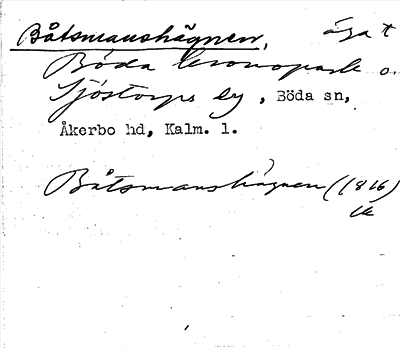 Båtsmanshägnen, äga t
Böda kronopark o.
Sjöstorps by, Böda sn,
Åkerbo hd, Kalm. l.
Båtsmanshägnen (1816)